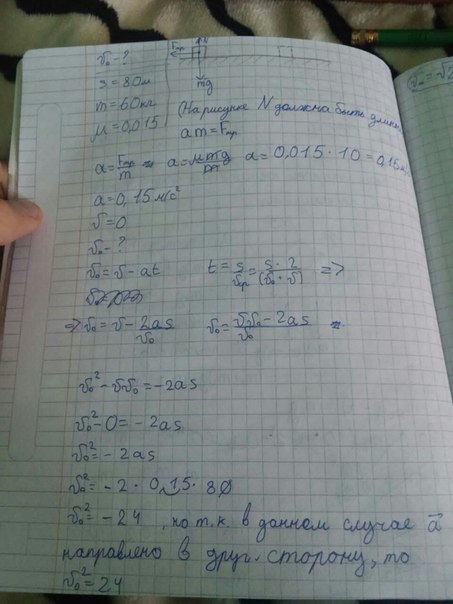 v₀ - ?
s = 80м
m = 60кг
μ = 0,015
Fтр
N
mg
(На рисунке N должна быть длинн
am = Fтр
a = Fтр/m => a = μmg/m a = 0,015 · 10 = 0,15м
a = 0,15 м/с²
v = 0
v₀ - ?
v₀ = v - at t = s/vср = s · 2/(v₀ + v) =>
=> v₀ = v - 2as/v₀ v₀ = vv₀ - 2as/v₀
v₀² - vv₀ = -2as
v₀² - 0 = -2as
v₀² = -2as
v₀² = -2 · 0,15 · 80
v₀² = -24 , но т.к. в данном случае a⃗
направлено в друг. сторону, то
v₀² = 24